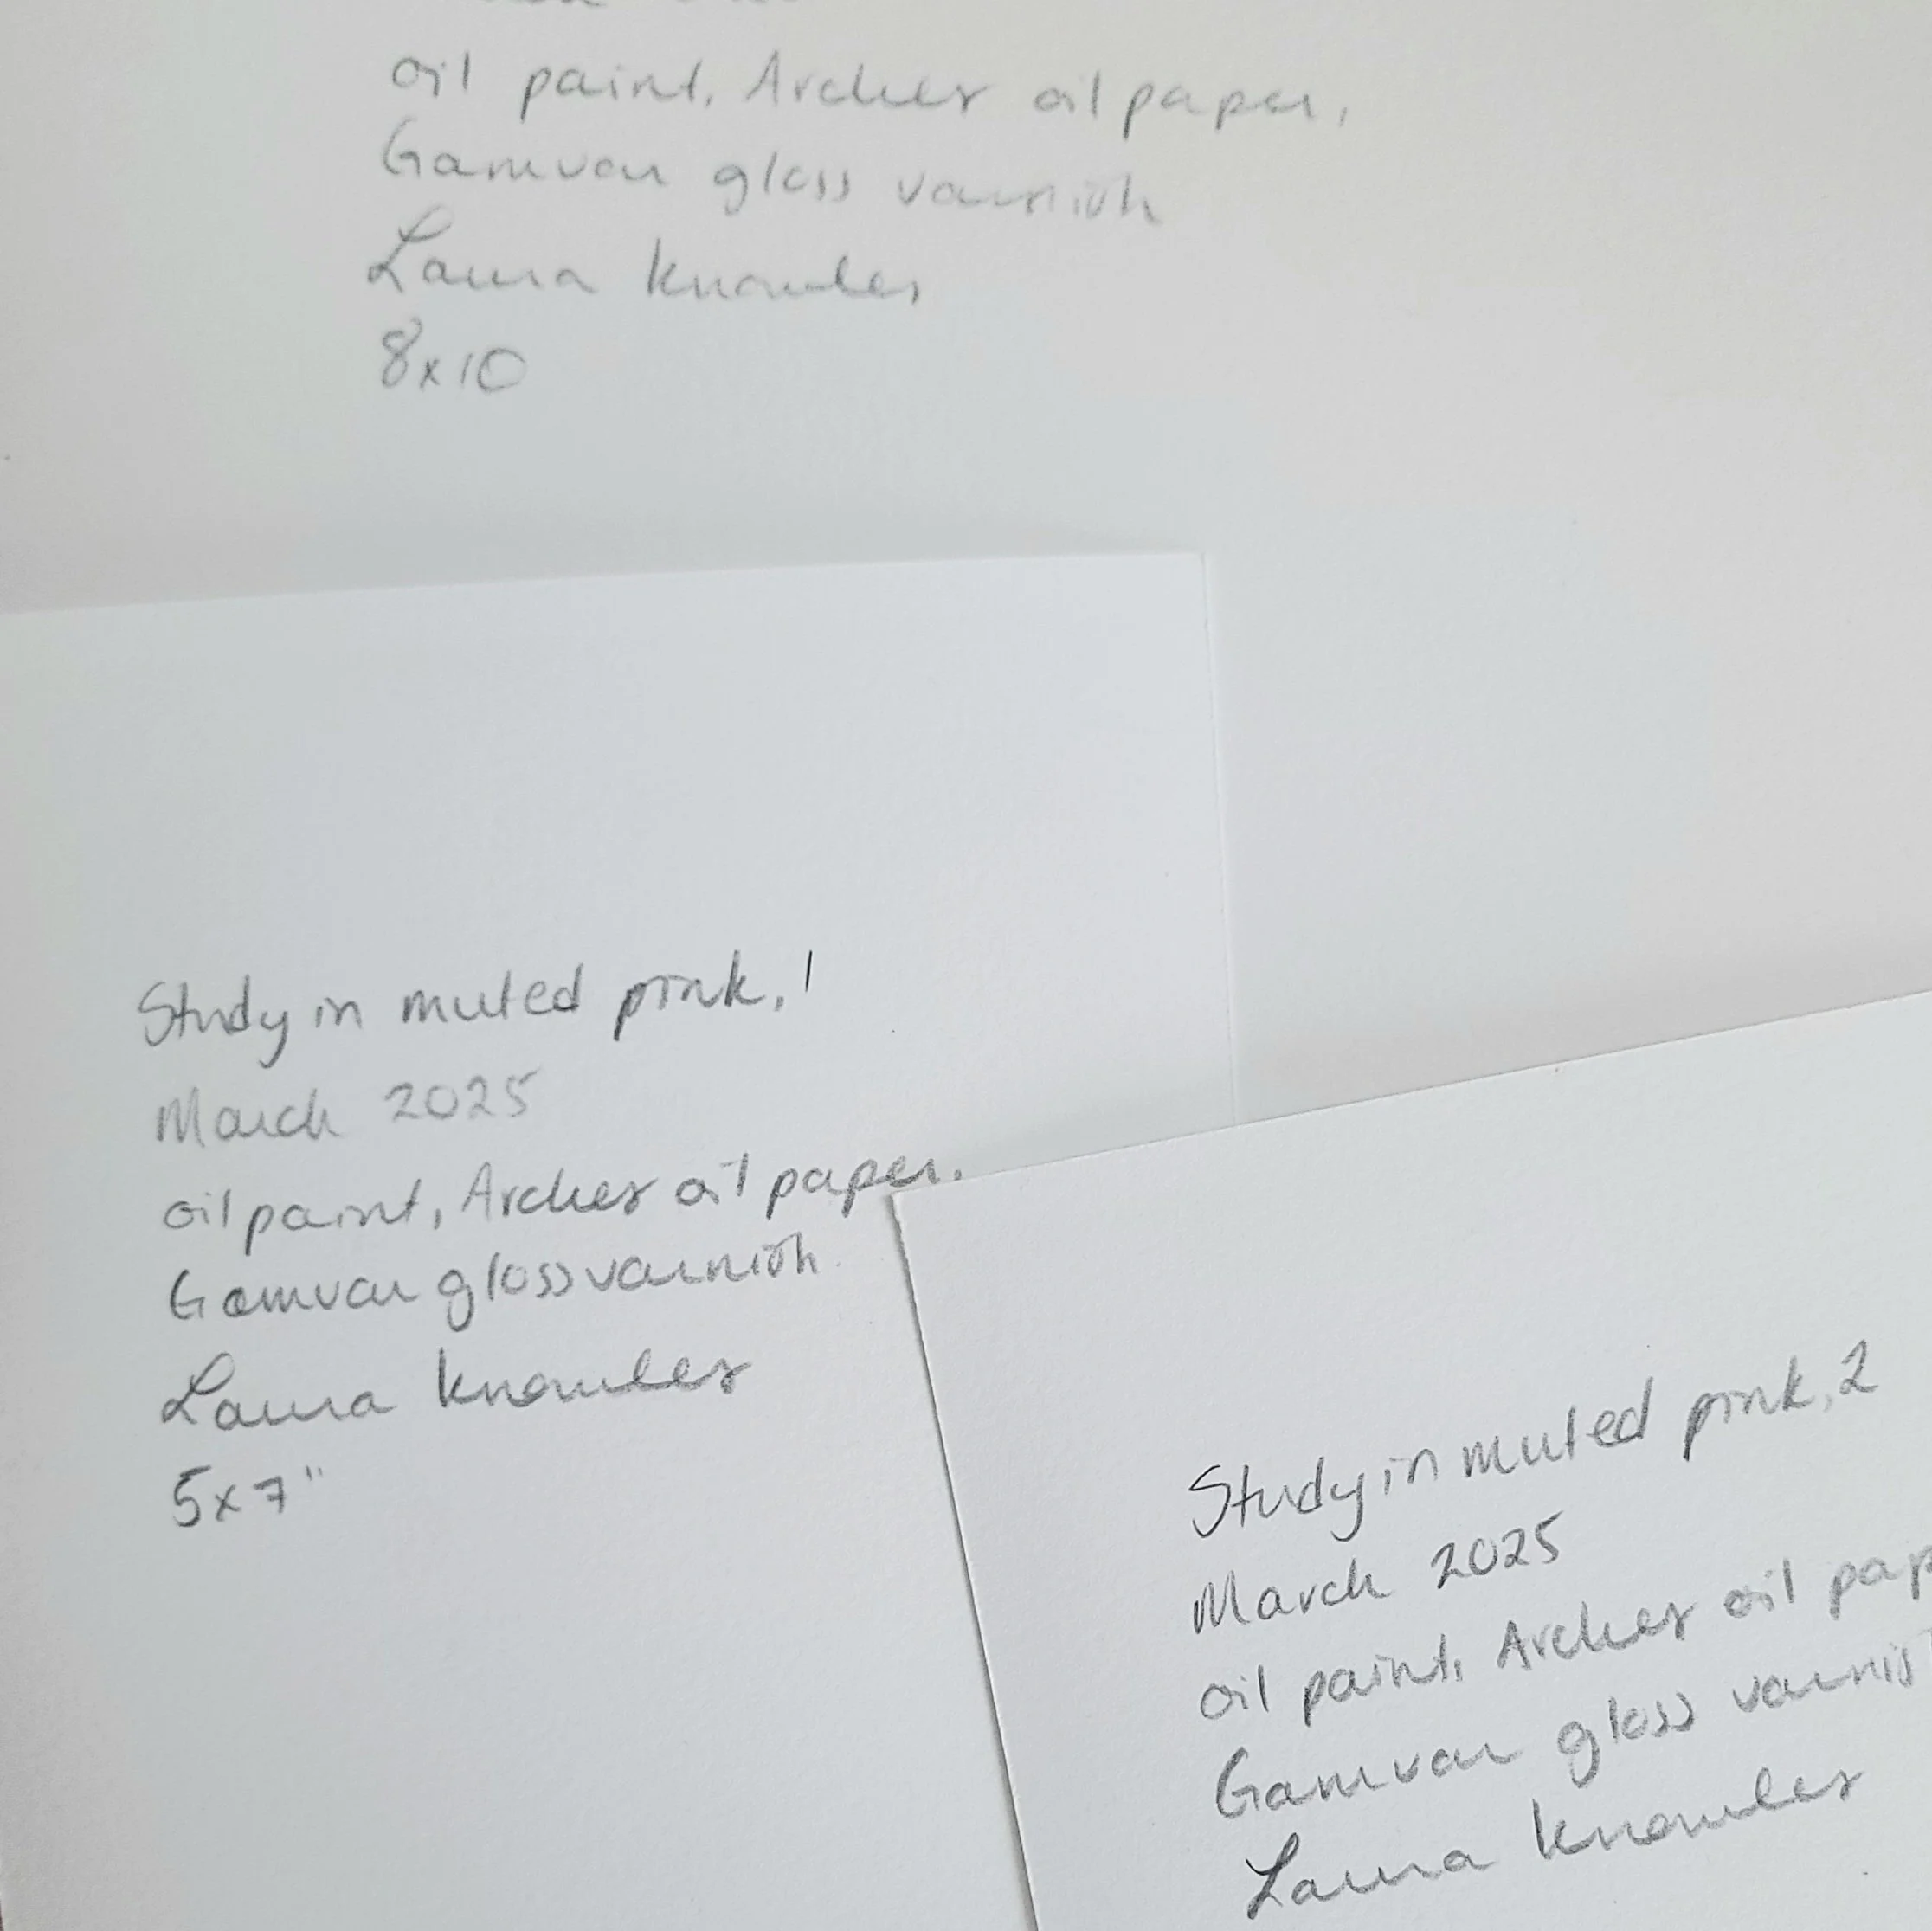 oil paint, Arches oil paper,
Gamvar gloss varnish
Laura Knowles
8x10
Study in muted pink, 1
March 2025
oil paint, Arches oil paper.
Gamvar gloss varnish
Laura Knowles
5x7"
Study in muted pink, 2
March 2025
oil paint, Arches oil pap
Gamvar gloss varnis
Laura Knowles